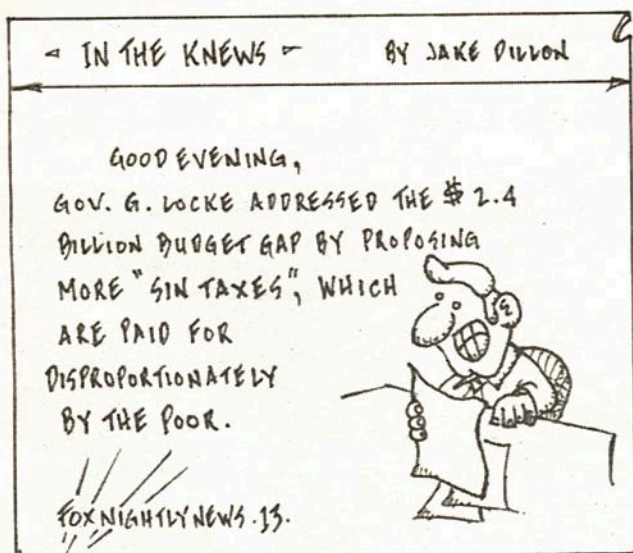 IN THE KNEWS BY JAKE DILLON
GOOD EVENING,
GOV. G. LOCKE ADDRESSED THE $ 2.4
BILLION BUDGET GAP BY PROPOSING
MORE "SIN TAXES", WHICH
ARE PAID FOR
DISPROPORTIONATELY
BY THE POOR.
FOX NIGHTLY NEWS.13.